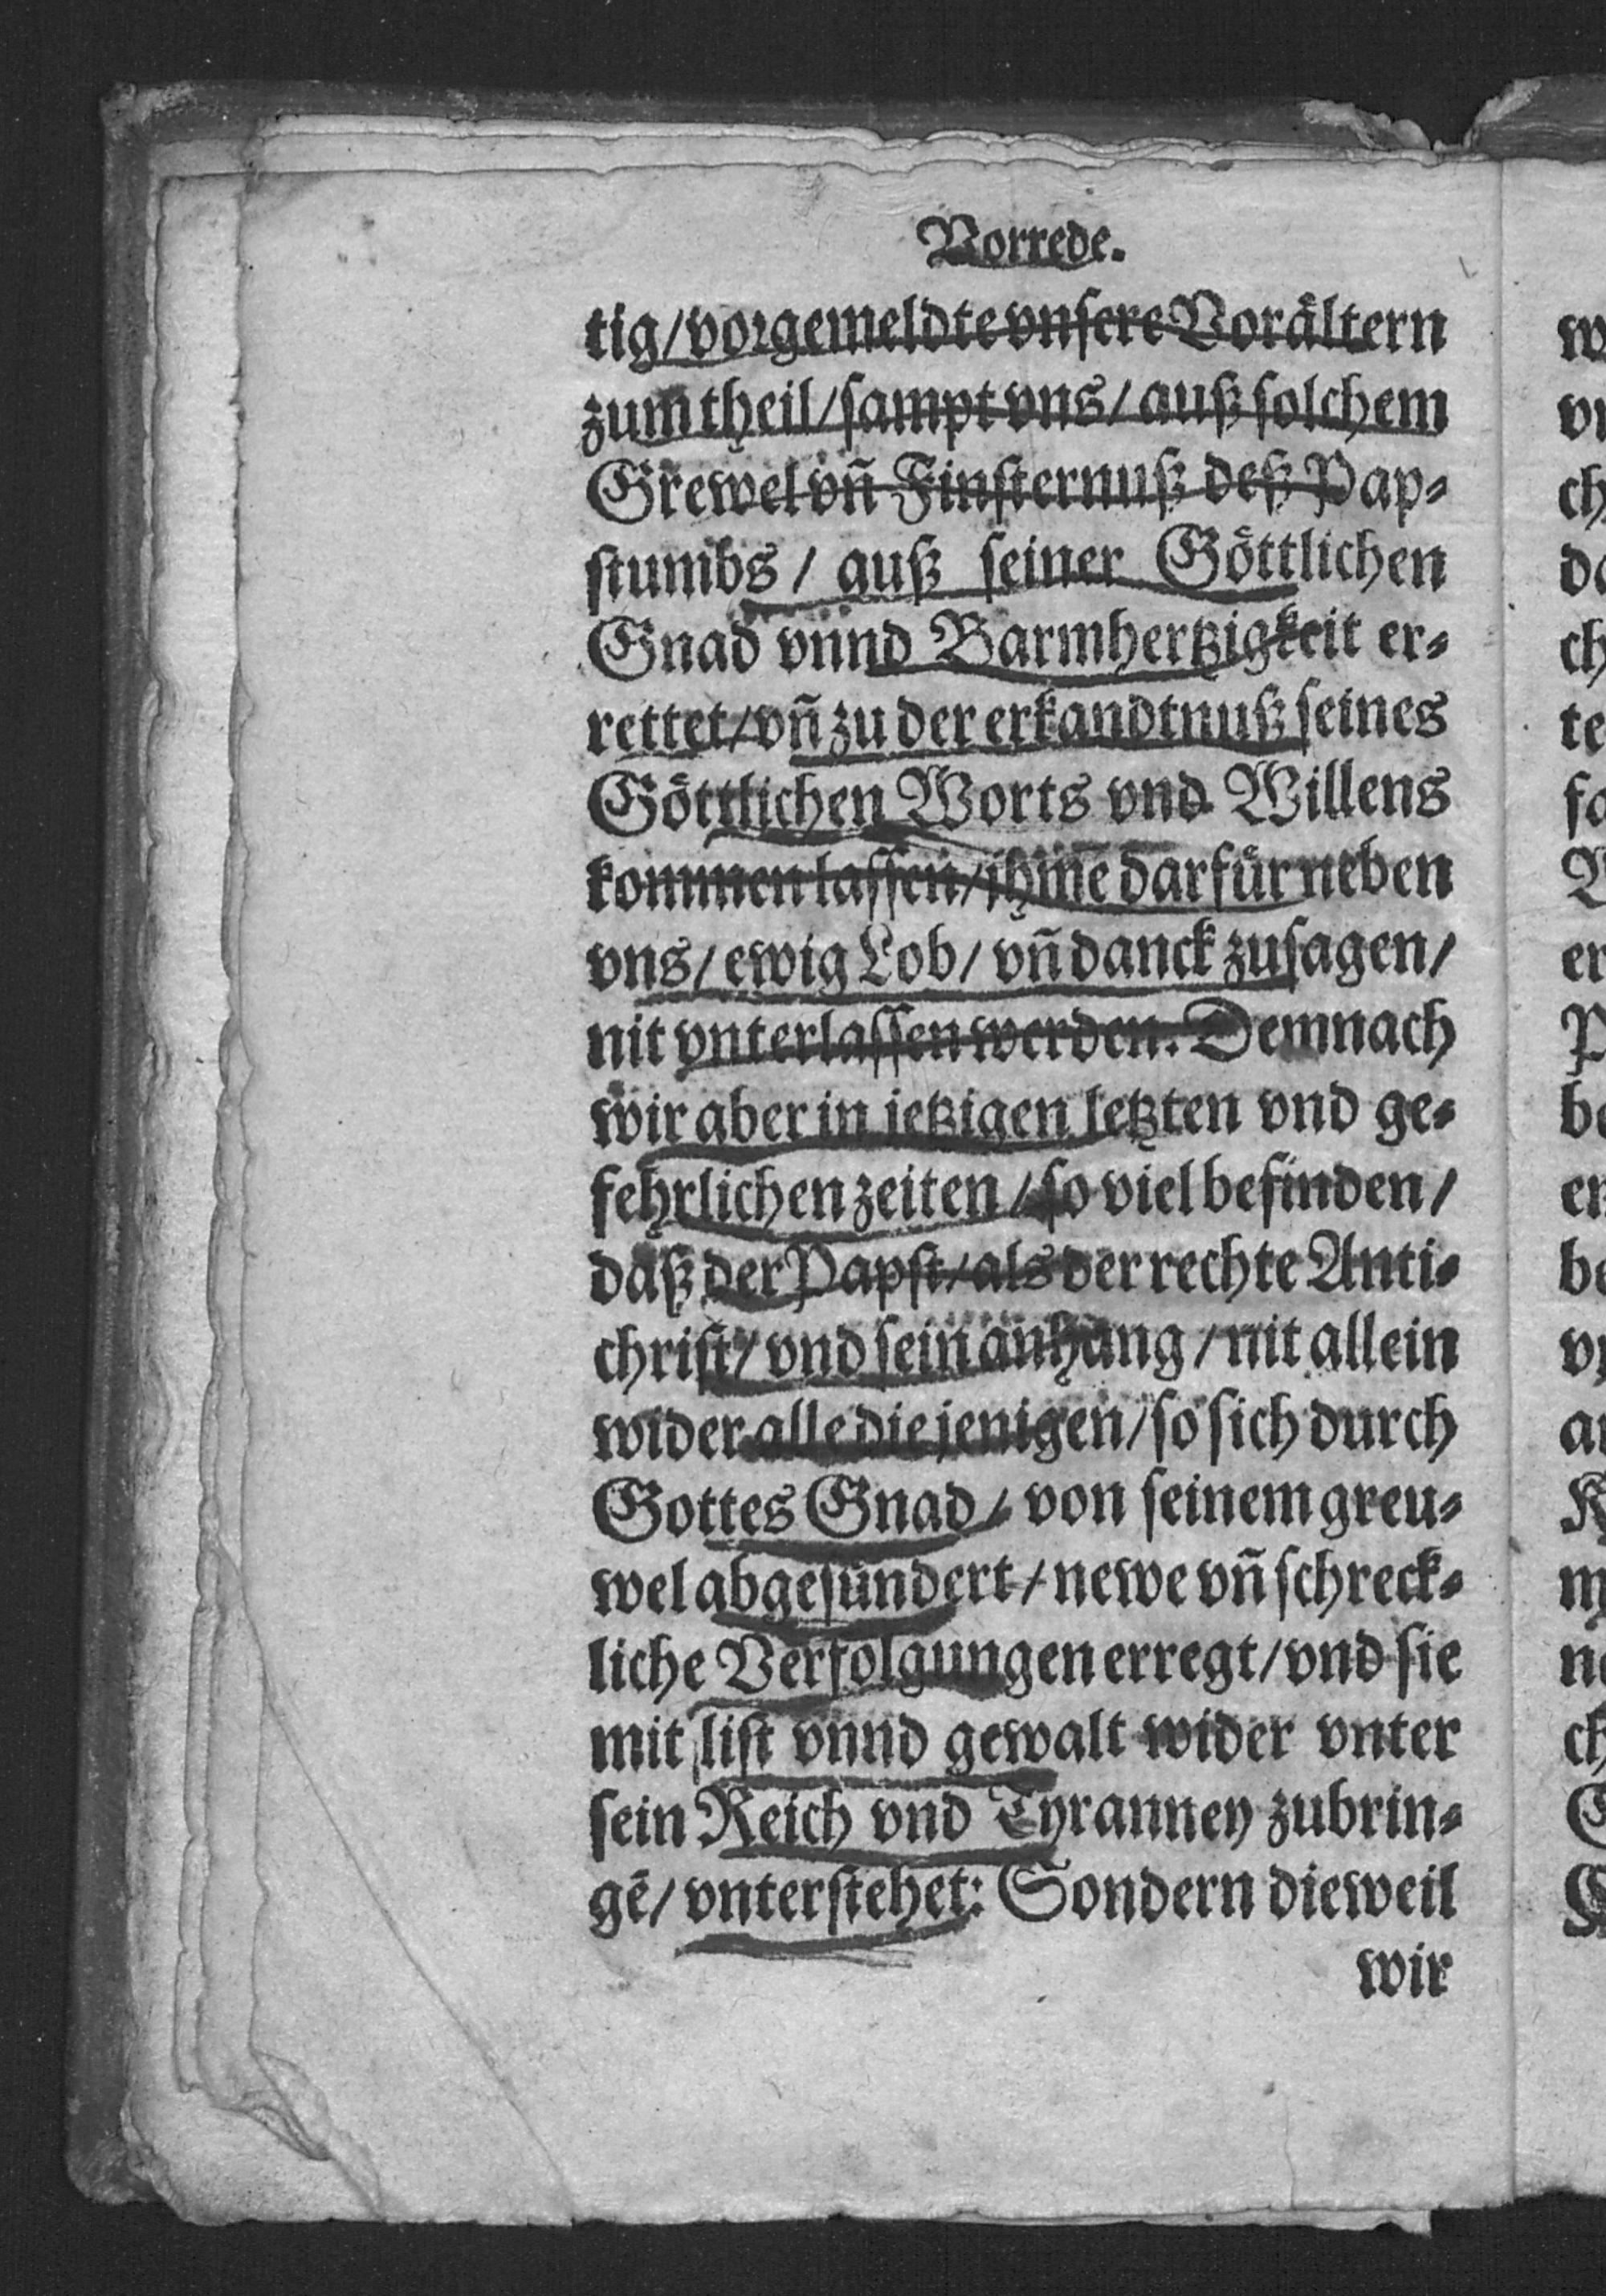 Vorrede.
tig/vorgemeldte vnsere Vorältern
zum theil/sampt vns/auß solchem
Grewel vñ Finsternuß deß Pap-
stumbs / auß seiner Göttlichen
Gnad vnnd Barmhertzigkeit er-
rettet/vñ zu der erkandtnuß seines
Göttlichen Worts vnd Willens
kommen lassen/ihme darfür neben
vns/ewig Lob/vñ danck zusagen/
nit vnterlassen werden. Demnach
wir aber in jetzigen letzten vnd ge-
fehrlichen zeiten/so viel befinden/
daß der Papst/als der rechte Anti-
christ/vnd sein anhang/nit allein
wider alle die jenigen/so sich durch
Gottes Gnad/von seinem greu-
wel abgesündert/newe vñ schreck-
liche Verfolgungen erregt/vnd sie
mit list vnnd gewalt wider vnter
sein Reich vnd Tyranney zubrin-
gē/vnterstehet: Sondern dieweil
wir